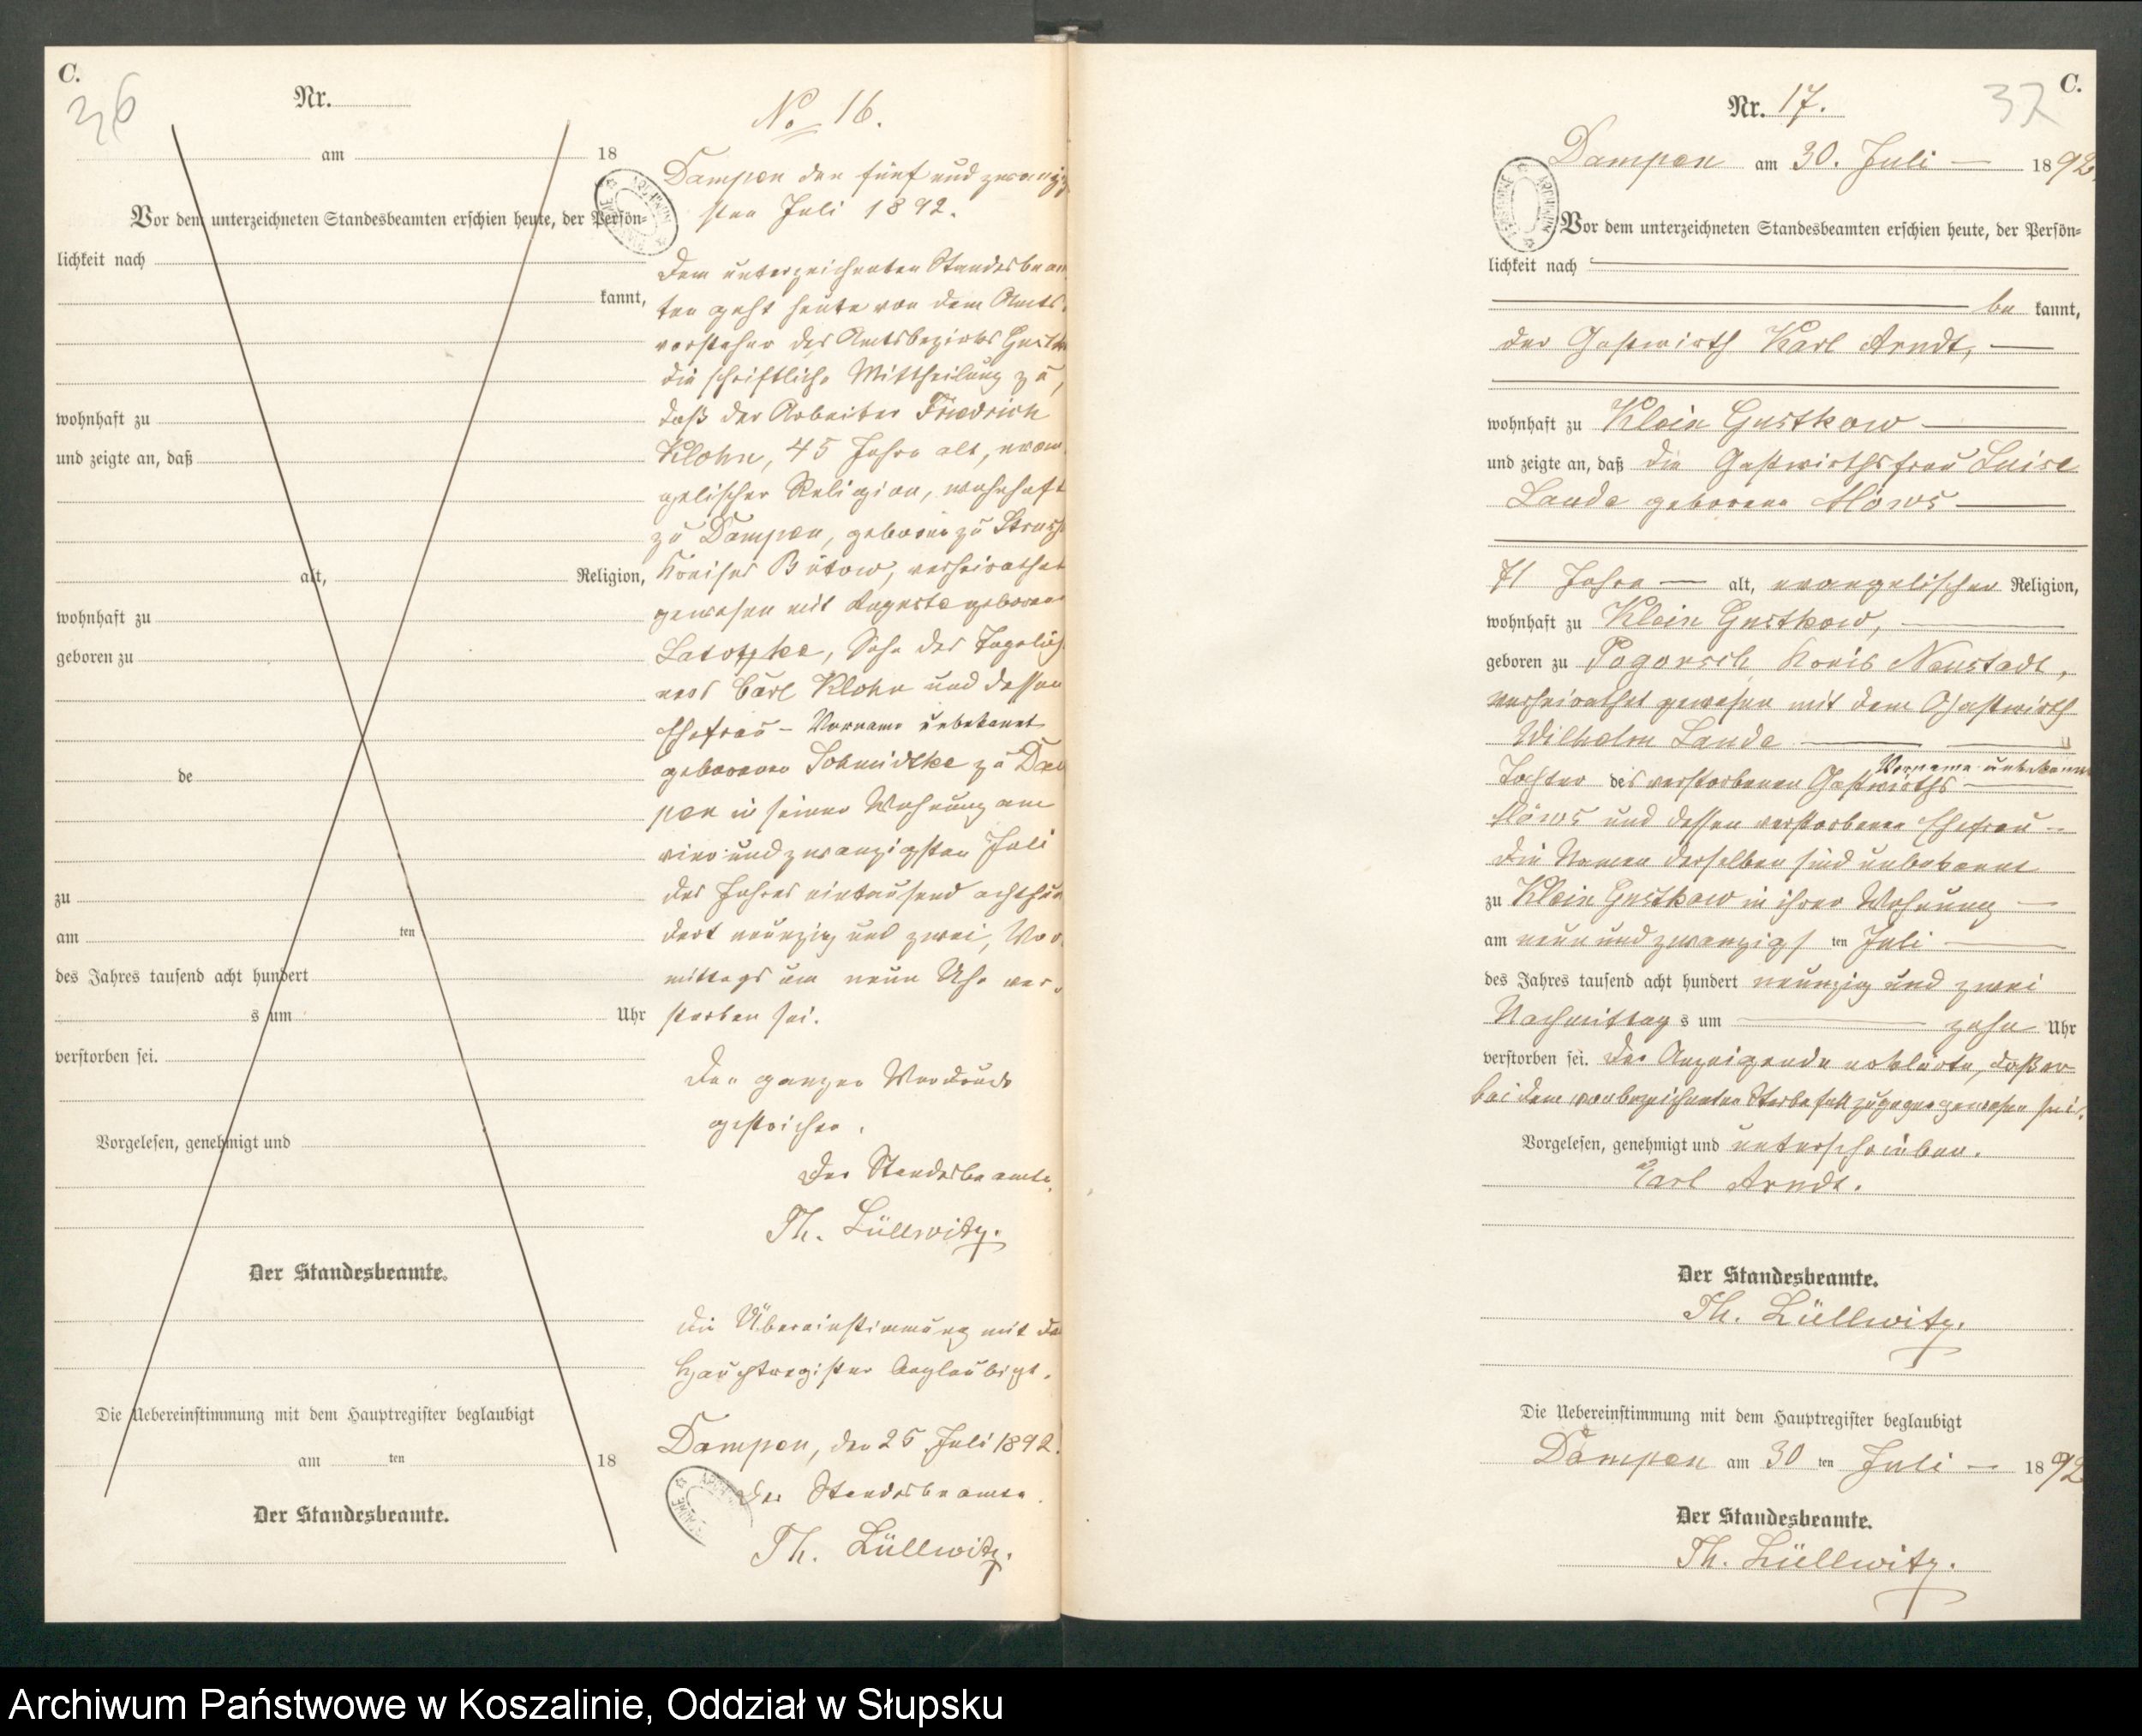 C.
36
Nr.
am 18
Vor dem unterzeichneten Standesbeamten erschien heute, der Persön-
lichkeit nach
kannt,
wohnhaft zu
und zeigte an, daß
alt, Religion,
wohnhaft zu
geboren zu
de
zu
am ten
des Jahres tausend acht hundert
s um Uhr
verstorben sei.
Vorgelesen, genehmigt und
Der Standesbeamte.
Die Uebereinstimmung mit dem Hauptregister beglaubigt
am ten 18
Der Standesbeamte.
No 16.
Dampen den fünf und zwanzig
sten Juli 1892.
Dem unterzeichneten Standesbeam
ten geht heute von dem Amts
vorsteher des Amtsbezirks
die schriftliche Mittheilung zu,
daß der Arbeiter Friedrich
Klohn, 45 Jahre alt, evan
gelischer Religion, wohnhaft
zu Dampen, geboren zu
Kreises Bütow, verheirathet
gewesen mit Auguste geborene
Latotzke, Sohn des Tagelöh
ners Carl Klohn und dessen
Ehefrau - Vorname unbekannt
geborenen Schmidtke zu Dam
pen in seiner Wohnung am
vier und zwanzigsten Juli
des Jahres eintausend achthun
dert neunzig und zwei, Vor
mittags um neun Uhr ver-
storben sei.
Den ganzen Vordruck
gestrichen.
Der Standesbeamte.
Th. Lüllwitz.
Die Übereinstimmung mit dem
Hauptregister beglaubigt.
Dampen, den 25 Juli 1892.
Der Standesbeamte.
Th. Lüllwitz.
C.
37
Nr. 17.
Dampen am 30. Juli 1892.
Vor dem unterzeichneten Standesbeamten erschien heute, der Persön-
lichkeit nach
be kannt,
der Gastwirth Karl Arndt,
wohnhaft zu Klein Gustkow
und zeigte an, daß die Gastwirthsfrau Luise
Lande geborene Möws
71 Jahre alt, evangelischer Religion,
wohnhaft zu Klein Gustkow,
geboren zu Pogorsch Kreis Neustadt,
verheirathet gewesen mit dem Gastwirth
Wilhelm Lande
Vorname unbekannt
Tochter des verstorbenen Gastwirths
Möws und dessen verstorbenen Ehefrau
die Namen derselben sind unbekannt
zu Klein Gustkow in ihrer Wohnung
am neun und zwanzigs ten Juli
des Jahres tausend acht hundert neunzig und zwei
Nachmittag s um zehn Uhr
verstorben sei. Der Anzeigende erklärte, daß er
bei dem vorbezeichneten Sterbefall zugegen gewesen sei.
Vorgelesen, genehmigt und unterschrieben.
Carl Arndt.
Der Standesbeamte.
Th. Lüllwitz.
Die Uebereinstimmung mit dem Hauptregister beglaubigt
Dampen am 30 ten Juli 1892
Der Standesbeamte.
Th. Lüllwitz.
Archiwum Państwowe w Koszalinie, Oddział w Słupsku